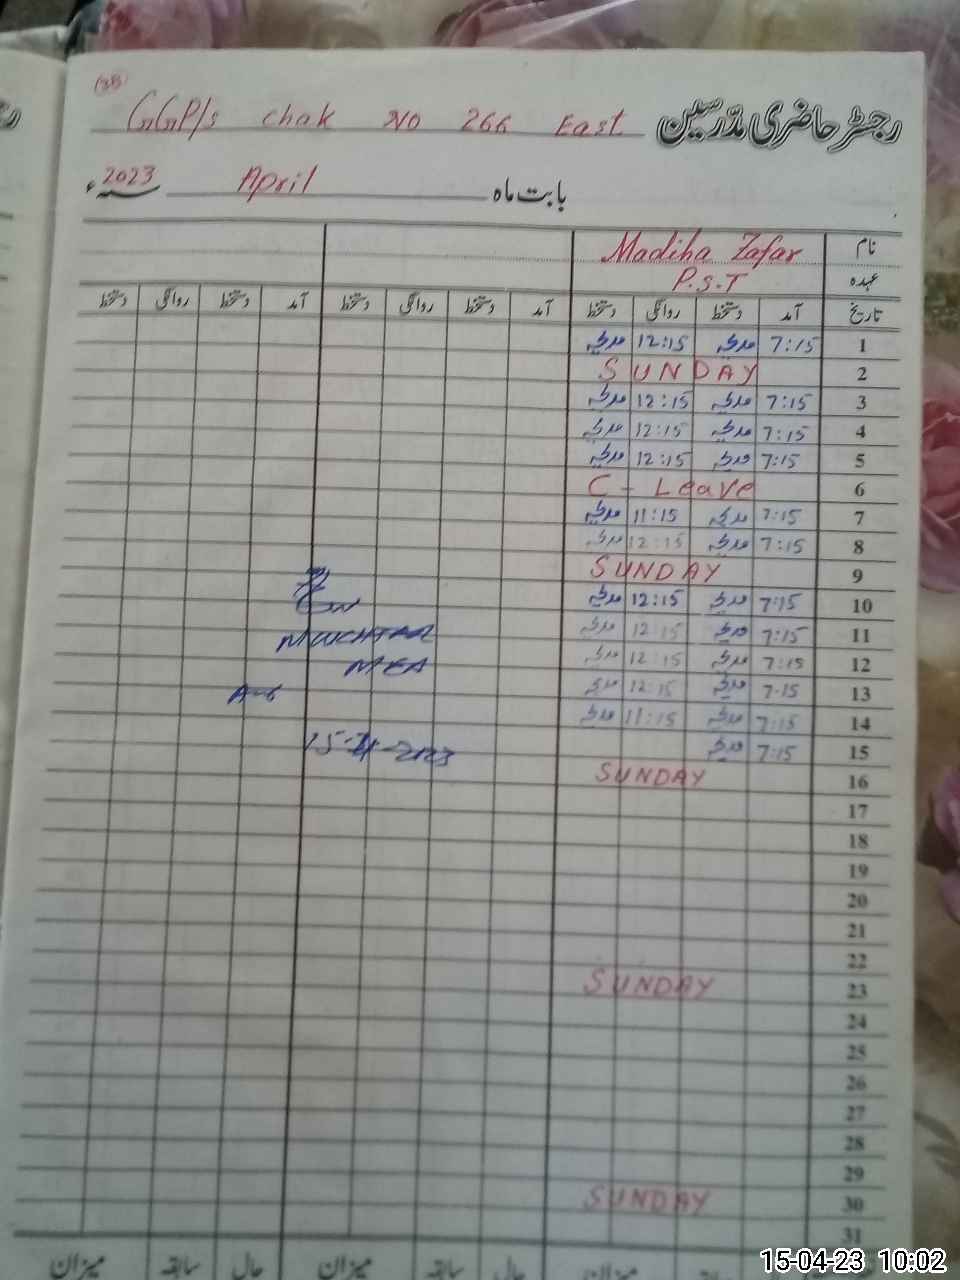 (38)
GGP/s Chak No 266 East رجسٹر حاضری مدرسین
بابت ماہ April 2023 سنہء
نام Madiha Zafar
عہدہ P.S.T
تاریخ آمد دستخط روانگی دستخط آمد دستخط روانگی دستخط آمد دستخط روانگی دستخط
1 7:15 مدیحہ 12:15 مدیحہ
2 SUNDAY
3 7:15 مدیحہ 12:15 مدیحہ
4 7:15 مدیحہ 12:15 مدیحہ
5 7:15 مدیحہ 12:15 مدیحہ
6 C - Leave
7 7:15 مدیحہ 11:15 مدیحہ
8 7:15 مدیحہ 12:15 مدیحہ
9 SUNDAY
10 7:15 مدیحہ 12:15 مدیحہ
11 7:15 مدیحہ 12:15 مدیحہ MUCHTAR
12 7:15 مدیحہ 12:15 مدیحہ MEA
13 7-15 مدیحہ 12:15 مدیحہ
14 7:15 مدیحہ 11:15 مدیحہ
15 7:15 مدیحہ 15-4-2023
16 SUNDAY
17
18
19
20
21
22
23 SUNDAY
24
25
26
27
28
29
30 SUNDAY
31
میزان سابقہ حال میزان سابقہ حال میزان
15-04-23 10:02